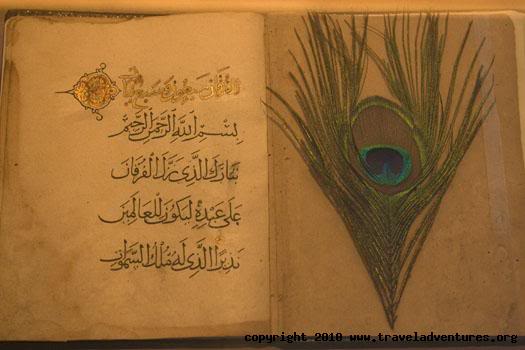 الفرقان سبعون و سبع
بِسْمِ اللَّهِ الرَّحْمَنِ الرَّحِيمِ
تَبَارَكَ الَّذِي نَزَّلَ الْفُرْقَانَ
عَلَى عَبْدِهِ لِيَكُونَ لِلْعَالَمِينَ
نَذِيرًا الَّذِي لَهُ مُلْكُ السَّمَوَاتِ
copyright 2010 www.traveladventures.org